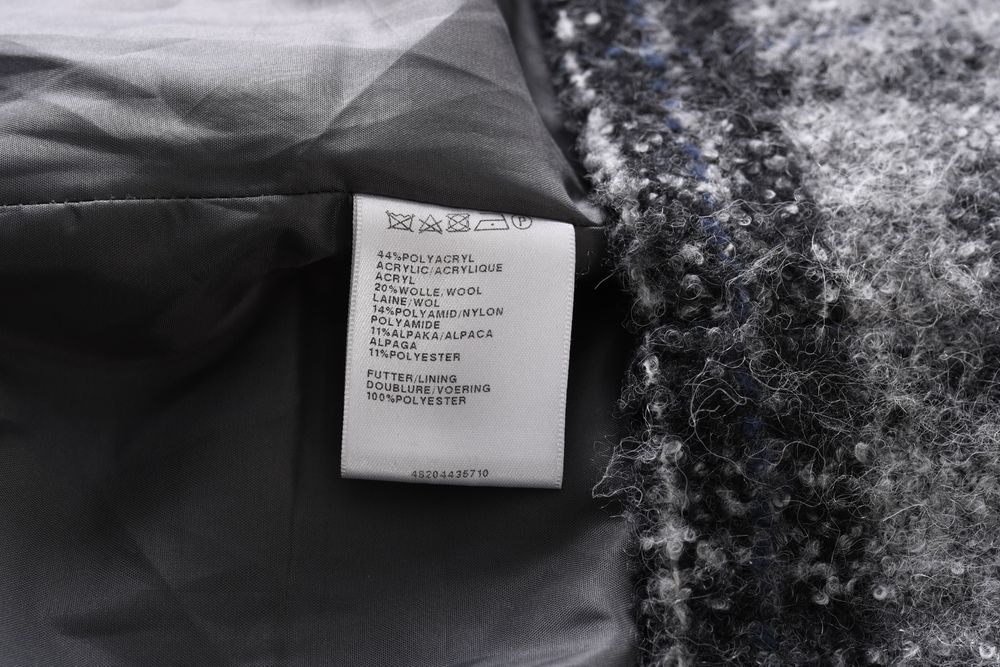 P
44%POLYACRYL
ACRYLIC/ACRYLIQUE
ACRYL
20%WOLLE/WOOL
LAINE/WOL
14%POLYAMID/NYLON
POLYAMIDE
11%ALPAKA/ALPACA
ALPAGA
11%POLYESTER
FUTTER/LINING
DOUBLURE/VOERING
100%POLYESTER
48204435710